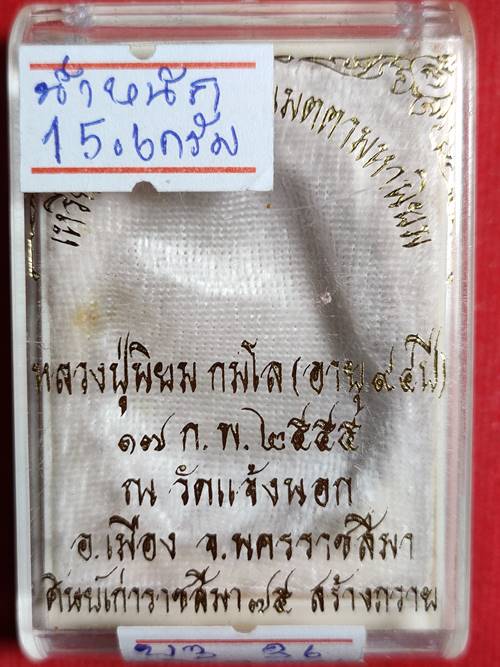 น้ำหนัก
15.6กรัม
เมตตามหานิยม
หลวงปู่นิยม กมโล (อายุ ๙๔ ปี)
๑๗ ก.พ. ๒๕๕๕
ณ วัดแจ้งนอก
อ.เมือง จ.นครราชสีมา
ศิษย์เก่าราชสีมา ๗๕ สร้างถวาย